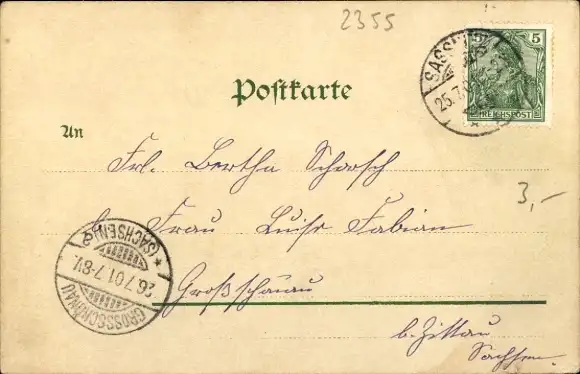 2355
5
REICHSPOST
SASSNITZ
25.7.
Postkarte
An
Frl. Bertha Scharsch
Frau Luise Fabian
3,-
(SACHSEN)
26.7.01.7-8V.
GROSSSCHÖNAU
Großschönau
b. Zittau
Sachsen.